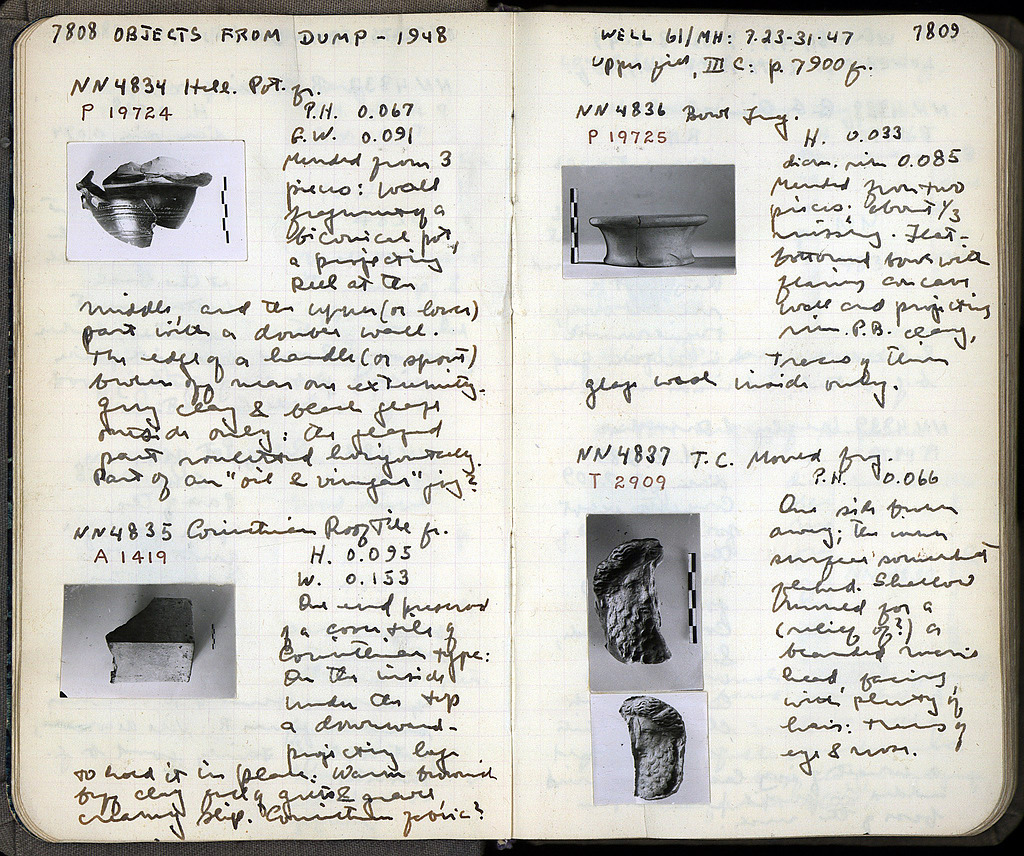 7808 OBJECTS FROM DUMP - 1948
NN 4834 Hell. Pot. fr.
P 19724
P.H. 0.067
G.W. 0.091
Mended from 3
pieces: wall
fragment of a
biconical pot,
a projecting
reel at the
middle, and the upper (or lower)
part with a double wall.
The edge of a handle (or spout)
broken off near one extremity.
Grey clay & black glaze
outside only: the glazed
part
horizontally.
Part of an "oil & vinegar" jug?
NN 4835 Corinthian Roof Tile fr.
A 1419
H. 0.095
W. 0.153
One end preserved
of a cover tile of
Corinthian type:
On the inside
under the top
a downward-
projecting lug
to hold it in place. Warm brownish
buff clay grits &
creamy slip. Corinthian fabric?
WELL 61/MH: 7.23-31.47
7809
Upper fill, III C: p. 7900 f.
NN 4836 Bowl Frg.
P 19725
H. 0.033
diam. rim 0.085
Mended from two
pieces. About 1/3
missing. Flat-
bottomed bowl with
flaring concave
wall and projecting
rim. P.B. clay,
traces of thin
glaze wash inside only.
NN 4837 T.C. Mould Frg.
T 2909
P.H. 0.066
One side broken
away; the inner
surface somewhat
Shallow
mould for a
(relief of?) a
bearded man's
head facing,
with plenty of
hair: traces of
eye & nose.